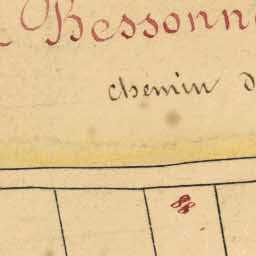 Bessonn
chemin d
88